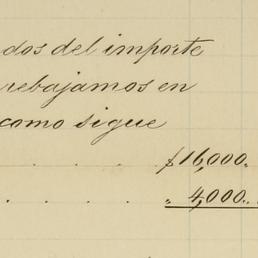 dos del importe
rebajamos en
como sigue
. . . . $16,000.
. . . . " 4,000..